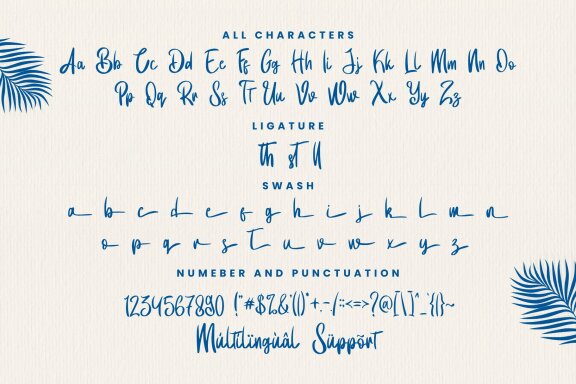 ALL CHARACTERS
Aa Bb Cc Dd Ee Ff Gg Hh Ii Jj Kk Ll Mm Nn Oo
Pp Qq Rr Ss Tt Uu Vv Ww Xx Yy Zz
LIGATURE
th st ll
SWASH
a b c d e f g h i j k l m n
o p q r s t u v w x y z
NUMEBER AND PUNCTUATION
1234567890 !"#$%&'()*+,-/:;<=>?@[\]^_`{|}~
Múltílïngùâl Süppõrt